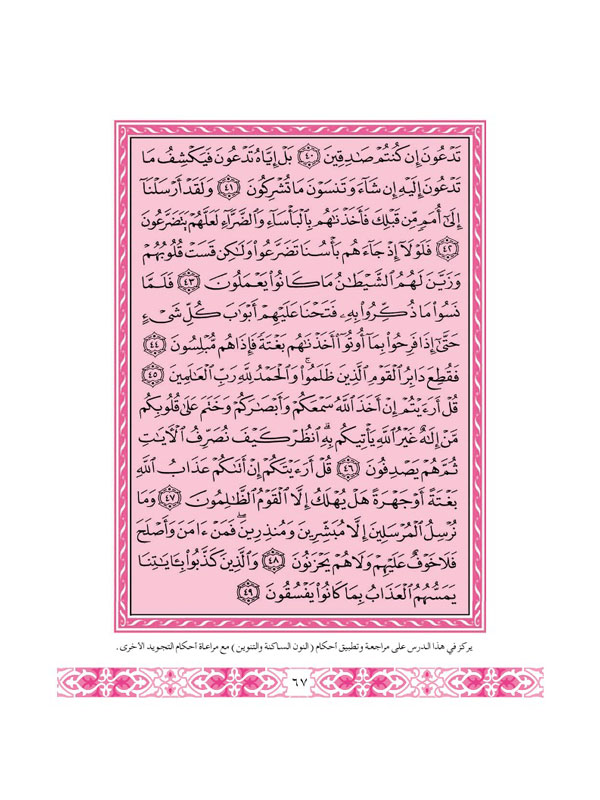 تَدۡعُونَ إِن كُنتُمۡ صَٰدِقِينَ ٤٠ بَلۡ إِيَّاهُ تَدۡعُونَ فَيَكۡشِفُ مَا
تَدۡعُونَ إِلَيۡهِ إِن شَآءَ وَتَنسَوۡنَ مَا تُشۡرِكُونَ ٤١ وَلَقَدۡ أَرۡسَلۡنَآ
إِلَىٰٓ أُمَمٖ مِّن قَبۡلِكَ فَأَخَذۡنَٰهُم بِٱلۡبَأۡسَآءِ وَٱلضَّرَّآءِ لَعَلَّهُمۡ يَتَضَرَّعُونَ
٤٢ فَلَوۡلَآ إِذۡ جَآءَهُم بَأۡسُنَا تَضَرَّعُواْ وَلَٰكِن قَسَتۡ قُلُوبُهُمۡ
وَزَيَّنَ لَهُمُ ٱلشَّيۡطَٰنُ مَا كَانُواْ يَعۡمَلُونَ ٤٣ فَلَمَّا
نَسُواْ مَا ذُكِّرُواْ بِهِۦ فَتَحۡنَا عَلَيۡهِمۡ أَبۡوَٰبَ كُلِّ شَيۡءٍ
حَتَّىٰٓ إِذَا فَرِحُواْ بِمَآ أُوتُوٓاْ أَخَذۡنَٰهُم بَغۡتَةٗ فَإِذَا هُم مُّبۡلِسُونَ ٤٤
فَقُطِعَ دَابِرُ ٱلۡقَوۡمِ ٱلَّذِينَ ظَلَمُواْۚ وَٱلۡحَمۡدُ لِلَّهِ رَبِّ ٱلۡعَٰلَمِينَ ٤٥
قُلۡ أَرَءَيۡتُمۡ إِنۡ أَخَذَ ٱللَّهُ سَمۡعَكُمۡ وَأَبۡصَٰرَكُمۡ وَخَتَمَ عَلَىٰ قُلُوبِكُم
مَّنۡ إِلَٰهٌ غَيۡرُ ٱللَّهِ يَأۡتِيكُم بِهِۗ ٱنظُرۡ كَيۡفَ نُصَرِّفُ ٱلۡأٓيَٰتِ
ثُمَّ هُمۡ يَصۡدِفُونَ ٤٦ قُلۡ أَرَءَيۡتَكُمۡ إِنۡ أَتَىٰكُمۡ عَذَابُ ٱللَّهِ
بَغۡتَةً أَوۡ جَهۡرَةً هَلۡ يُهۡلَكُ إِلَّا ٱلۡقَوۡمُ ٱلظَّٰلِمُونَ ٤٧ وَمَا
نُرۡسِلُ ٱلۡمُرۡسَلِينَ إِلَّا مُبَشِّرِينَ وَمُنذِرِينَۖ فَمَنۡ ءَامَنَ وَأَصۡلَحَ
فَلَا خَوۡفٌ عَلَيۡهِمۡ وَلَا هُمۡ يَحۡزَنُونَ ٤٨ وَٱلَّذِينَ كَذَّبُواْ بِـَٔايَٰتِنَا
يَمَسُّهُمُ ٱلۡعَذَابُ بِمَا كَانُواْ يَفۡسُقُونَ ٤٩
يركز في هذا الدرس على مراجعة وتطبيق أحكام ( النون الساكنة والتنوين ) مع مراعاة أحكام التجويد الأخرى .
٦٧